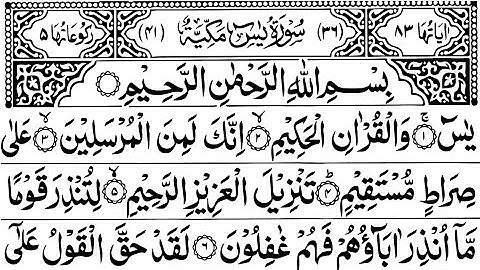 اٰيَاتُهَا ٨٣ (٣٦) سُوْرَةُ يٰسٓ مَكِّيَّةٌ (٤١) رُكُوْعَاتُهَا ٥
بِسْمِ اللّٰهِ الرَّحْمٰنِ الرَّحِيْمِ
يٰسٓ ۚ‏ ۝١ وَالْقُرْاٰنِ الْحَكِيْمِ ۙ‏ ۝٢ اِنَّكَ لَمِنَ الْمُرْسَلِيْنَ ۙ‏ ۝٣ عَلٰى
صِرَاطٍ مُّسْتَقِيْمٍ ؕ‏ ۝٤ تَنْزِيْلَ الْعَزِيْزِ الرَّحِيْمِ ۙ‏ ۝٥ لِتُنْذِرَ قَوْمًا
مَّاۤ اُنْذِرَ اٰبَآؤُهُمْ فَهُمْ غٰفِلُوْنَ ۝٦ لَقَدْ حَقَّ الْقَوْلُ عَلٰٓى